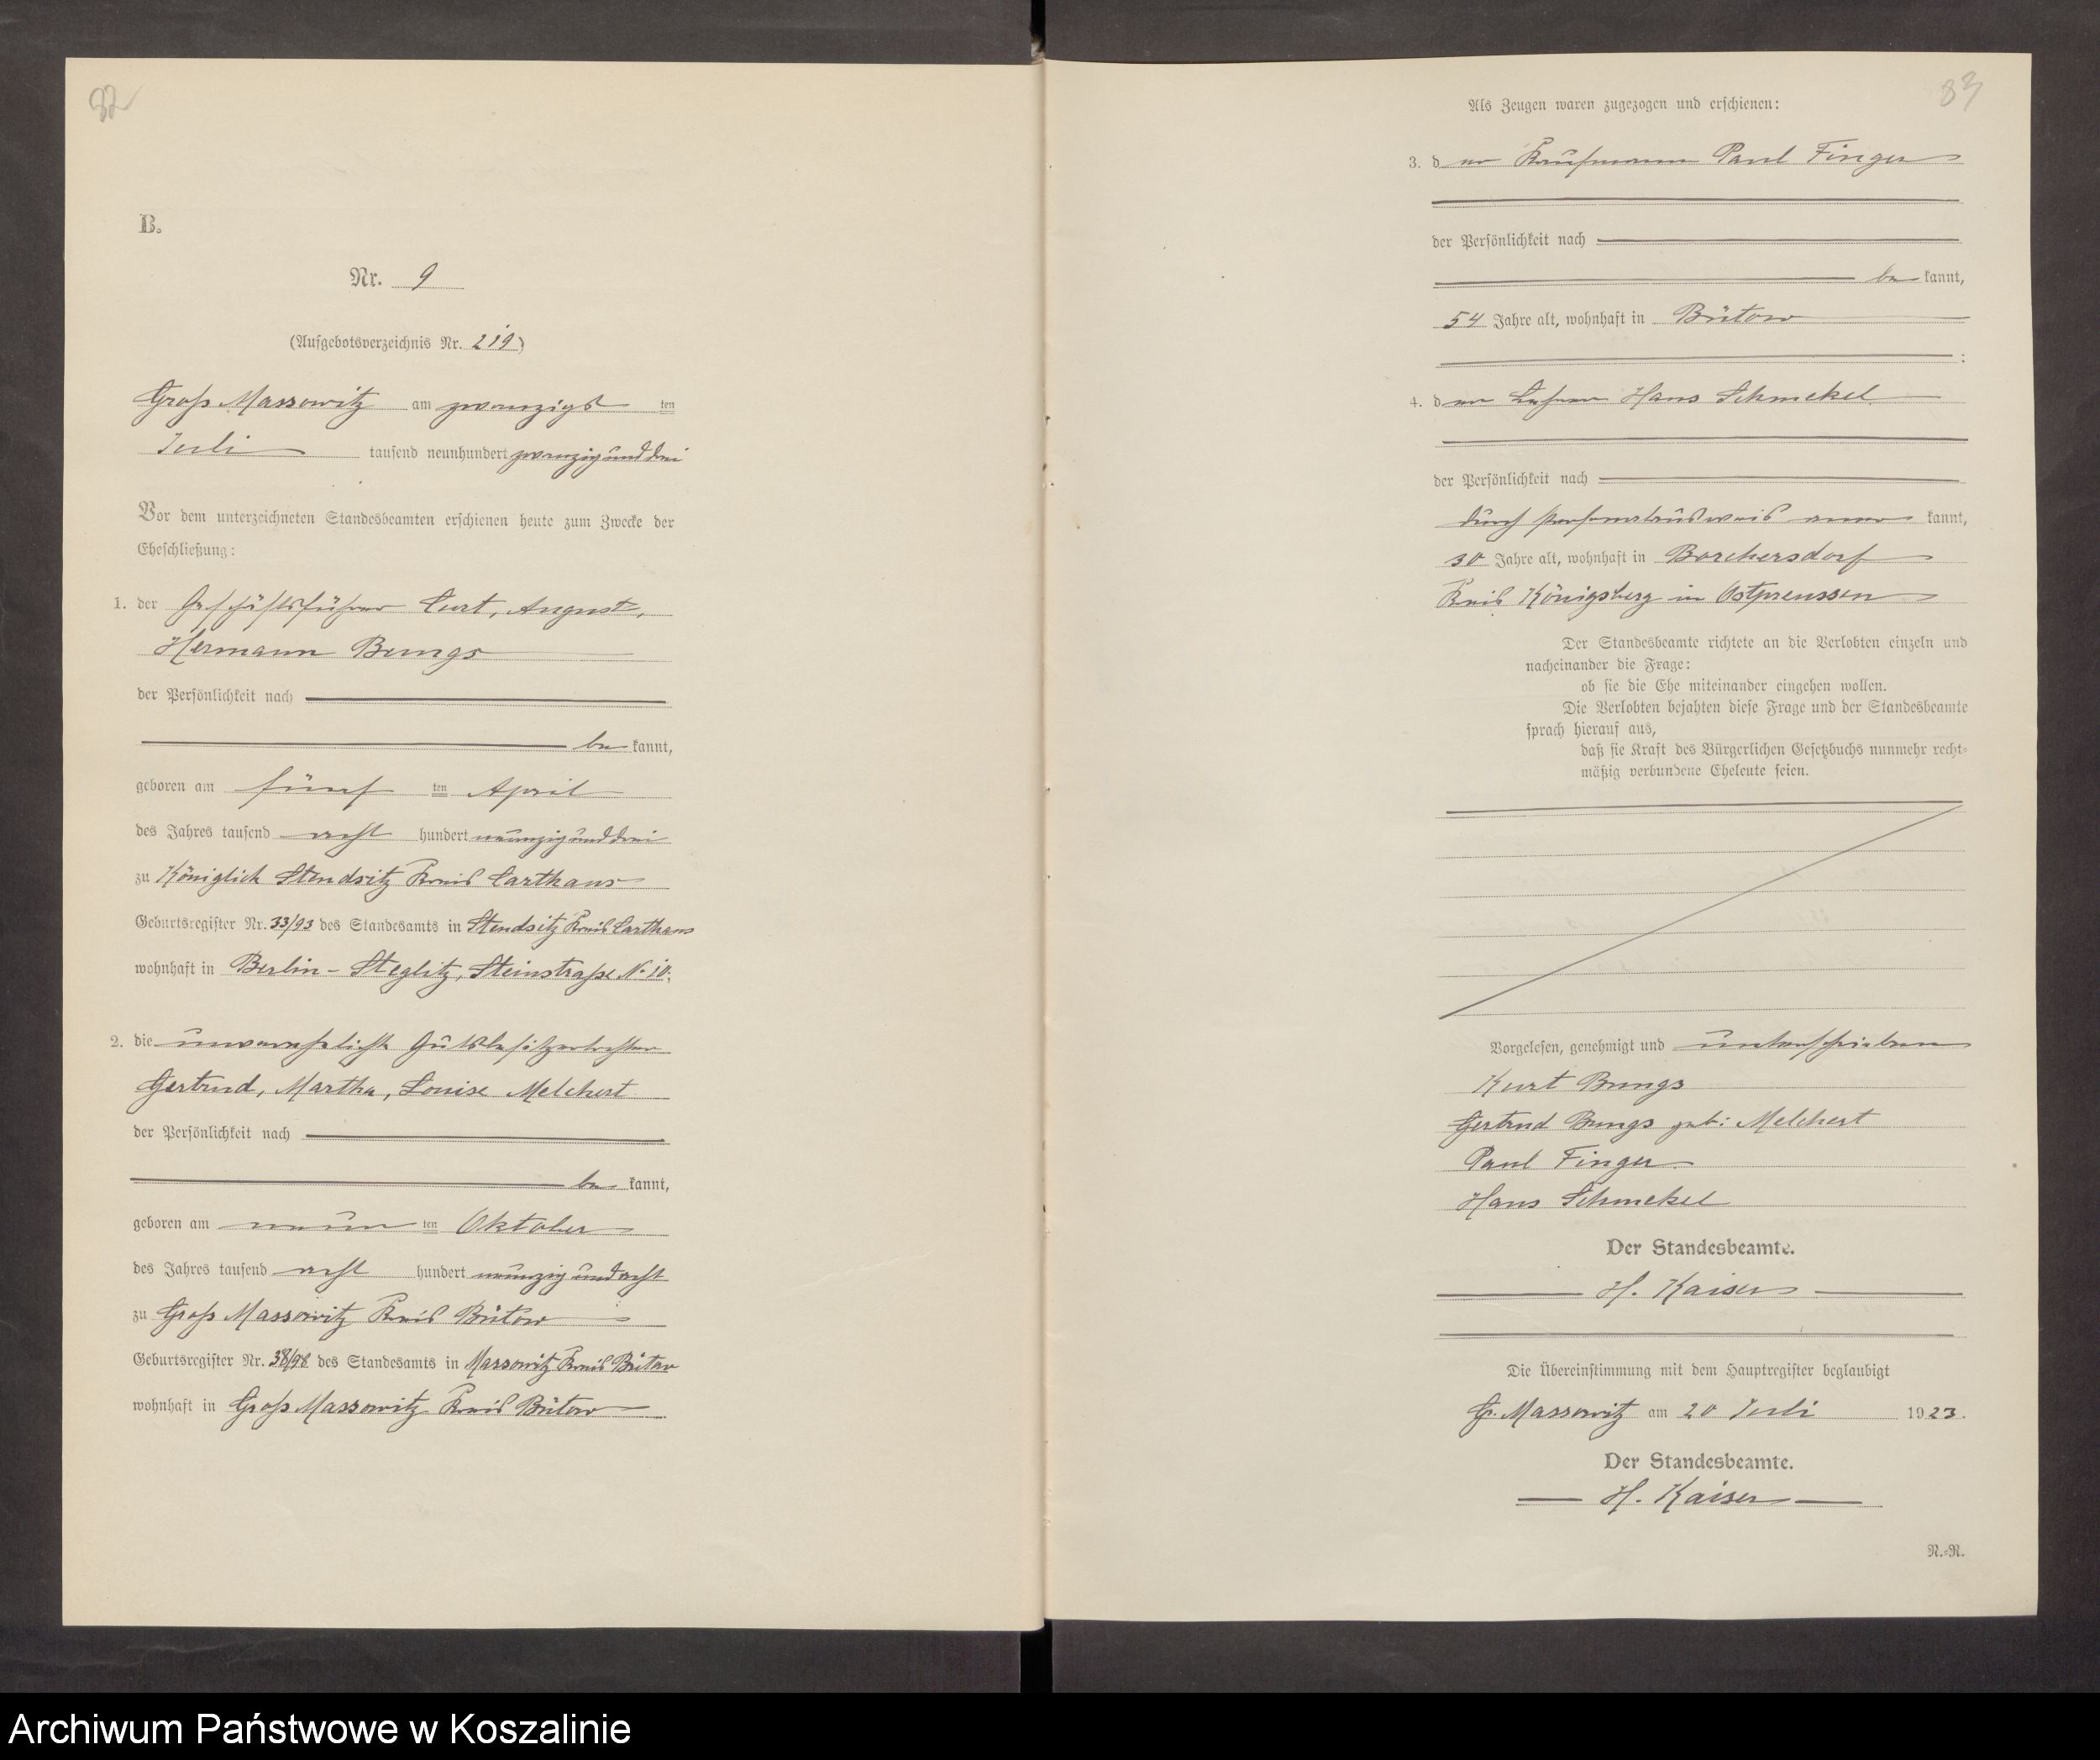 82
B.
Nr. 9
(Aufgebotsverzeichnis Nr. 219)
Groß Massowitz am zwanzigst ten
Juli tausend neunhundert zwanzig und drei
Vor dem unterzeichneten Standesbeamten erschienen heute zum Zwecke der
Eheschließung:
1. der Geschäftsführer Curt, August,
Hermann Bungs
der Persönlichkeit nach
be kannt,
geboren am fünf ten April
des Jahres tausend acht hundert neunzig und drei
zu Königlich Stendsitz Kreis Carthaus
Geburtsregister Nr. 33/93 des Standesamts in Stendsitz Kreis Carthaus
wohnhaft in Berlin - Steglitz, Steinstraße N. 10.
2. die unverehelichte Gutsbesitzertochter
Gertrud, Martha, Louise Melchert
der Persönlichkeit nach
be kannt,
geboren am neun ten Oktober
des Jahres tausend acht hundert neunzig und acht
zu Groß Massowitz Kreis Bütow
Geburtsregister Nr. 38/98 des Standesamts in Massowitz Kreis Bütow
wohnhaft in Groß Massowitz Kreis Bütow
83
Als Zeugen waren zugezogen und erschienen:
3. d er Kaufmann Paul Finger
der Persönlichkeit nach
be kannt,
54 Jahre alt, wohnhaft in Bütow
:
4. d er Lehrer Hans Schmekel
der Persönlichkeit nach
durch Personalausweis aner kannt,
30 Jahre alt, wohnhaft in Borchersdorf
Kreis Königsberg in Ostpreussen
Der Standesbeamte richtete an die Verlobten einzeln und
nacheinander die Frage:
ob sie die Ehe miteinander eingehen wollen.
Die Verlobten bejahten diese Frage und der Standesbeamte
sprach hierauf aus,
daß sie Kraft des Bürgerlichen Gesetzbuchs nunmehr recht-
mäßig verbundene Eheleute seien.
Vorgelesen, genehmigt und unterschrieben
Kurt Bungs
Gertrud Bungs geb: Melchert
Paul Finger
Hans Schmekel
Der Standesbeamte.
H. Kaiser
Die Übereinstimmung mit dem Hauptregister beglaubigt
Gr. Massowitz am 20 Juli 1923.
Der Standesbeamte.
H. Kaiser
N.-R.
Archiwum Państwowe w Koszalinie